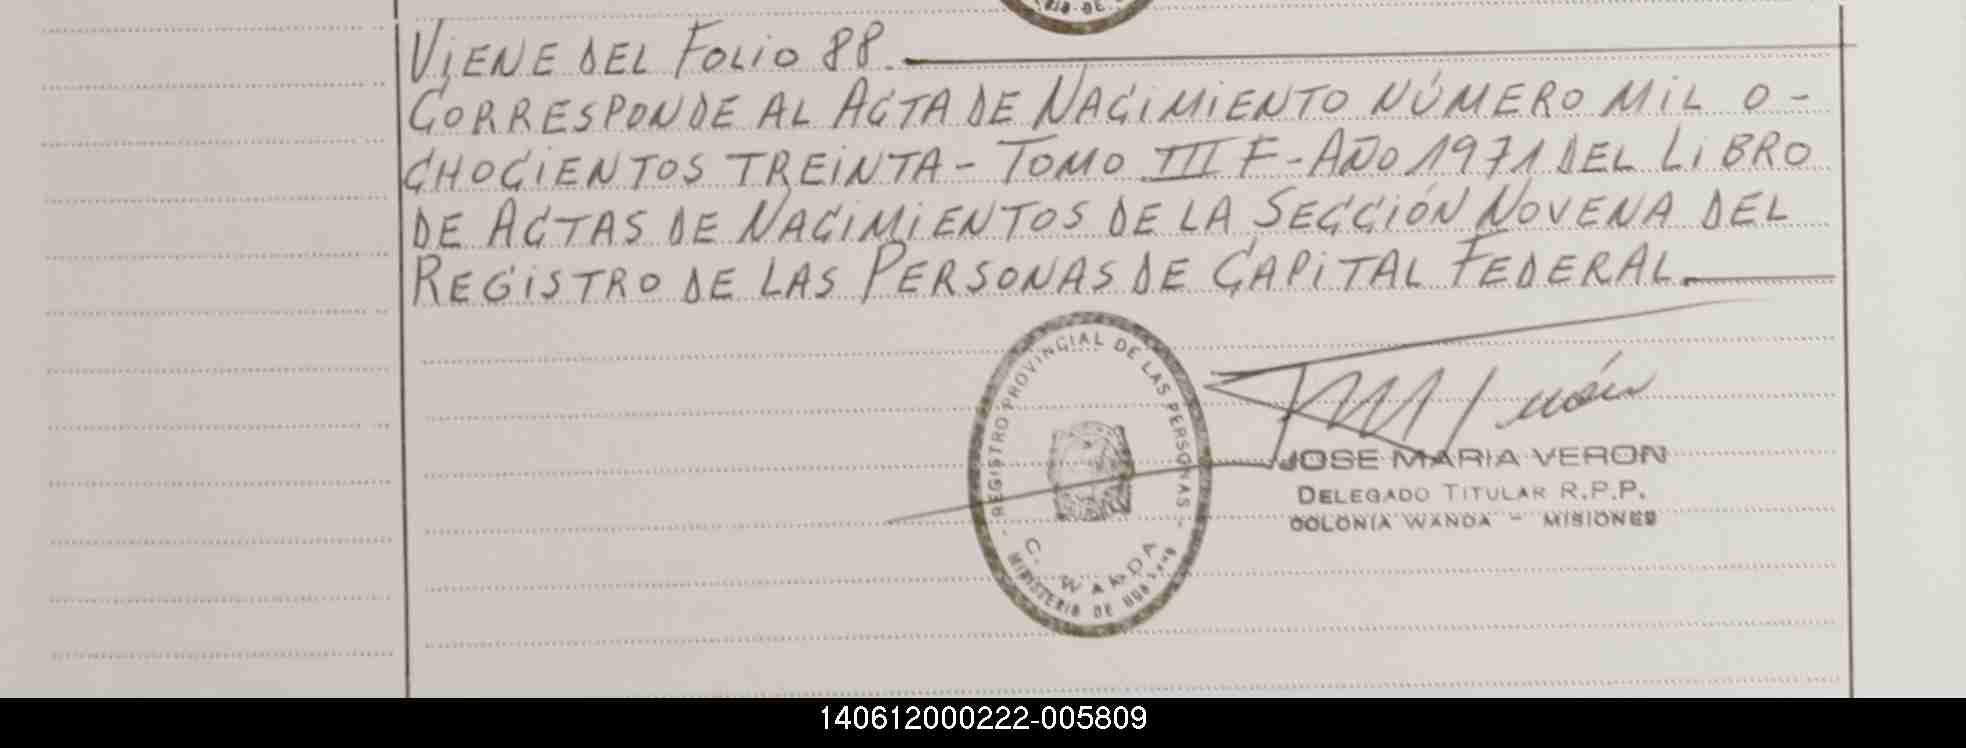 VIENE DEL FOLIO 88.
CORRESPONDE AL ACTA DE NACIMIENTO NÚMERO MIL O-
CHOCIENTOS TREINTA - TOMO III F - AÑO 1971 DEL LIBRO
DE ACTAS DE NACIMIENTOS DE LA SECCIÓN NOVENA DEL
REGISTRO DE LAS PERSONAS DE CAPITAL FEDERAL.
- REGISTRO PROVINCIAL DE LAS PERSONAS -
C. WANDA
MINISTERIO DE
JOSE MARIA VERON
DELEGADO TITULAR R.P.P.
COLONIA WANDA - MISIONES
140612000222-005809